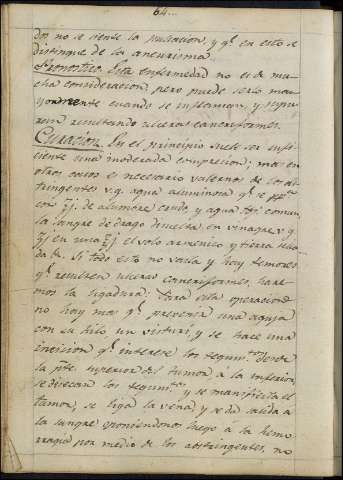 64..
dos no se siente la pulsacion, y qᵉ en esto se
distingue de la aneurisma.
Pronostico. Esta enfermedad no es de mu-
cha consideracion, pero puede serlo ma-
yormente cuando se inflaman, y supu-
ren resultando ulceras cancriformes.
Curacion. En el principio suele ser sufi-
ciente una moderada compresion; mas en
otros casos es necesario valernos de los as-
tringentes v.g. agua aluminosa qᵉ se
con ʒj. de alumbre crudo, y agua comun,
la sangre de drago disuelta en vinagre v.g.
ʒj en una ℥j el volo armenico y tierra sella
da &ᵃ. Si todo esto no vasta y hay temores
qᵉ resulten ulceras cancriformes, hare-
mos la ligadura: Para esta operacion
no hay mas qᵉ prevenir una aguja
con su hilo, un visturí, y se hace una
incision qᵉ interese los tegumᵗᵒˢ desde
la pᵗᵉ superior del tumor á la inferior,
se disecan los tegumᵗᵒˢ y se manifiesta el
tumor, se liga la vena, y se da salida a
la sangre oponiendonos luego á la hemo-
rragia por medio de los abstringentes, no